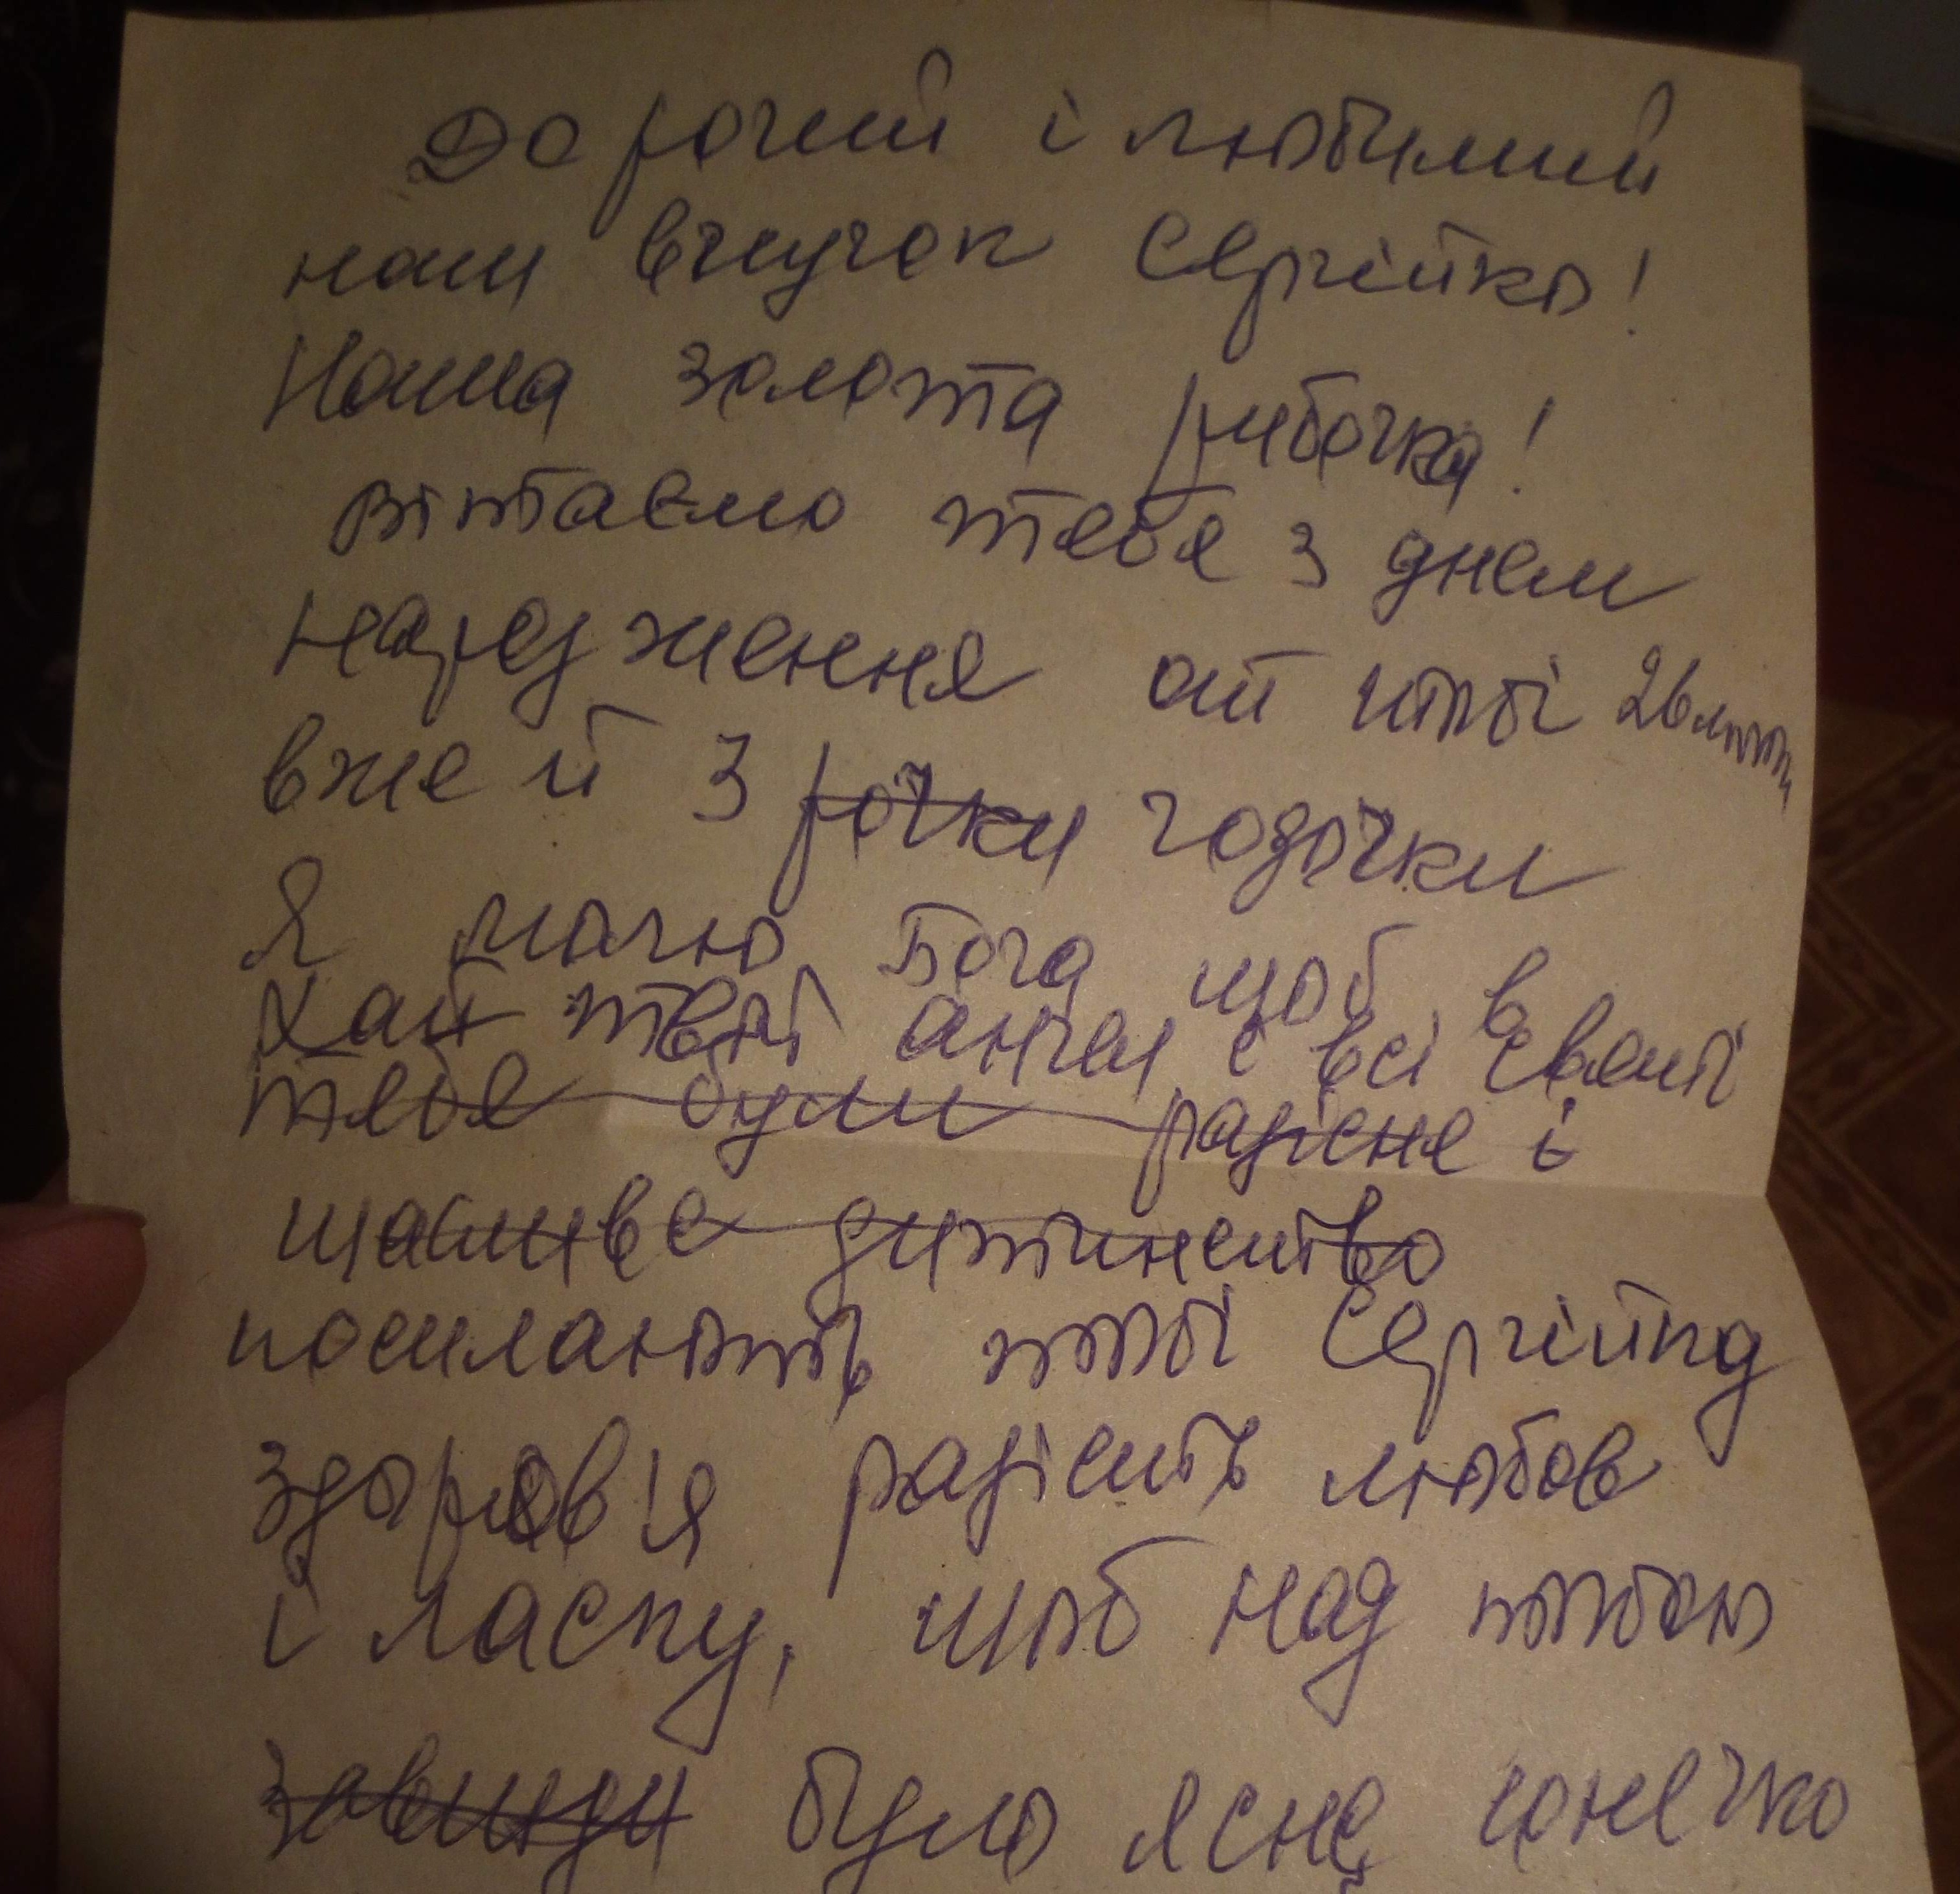 Дорогий і любимий
наш внучок Сергійко!
Наша золота рибочка!
вітаємо тебе з днем
народження ой тобі 26 лют
вже й 3 рочки годочки
Я молю Бога щоб в
хай твої ангел і всі святі
тебе були радісне і
щасливе дитинство
посилають тобі Сергійко
здоров'я радість любов
і ласку, щоб над тобою
завжди було ясне сонечко